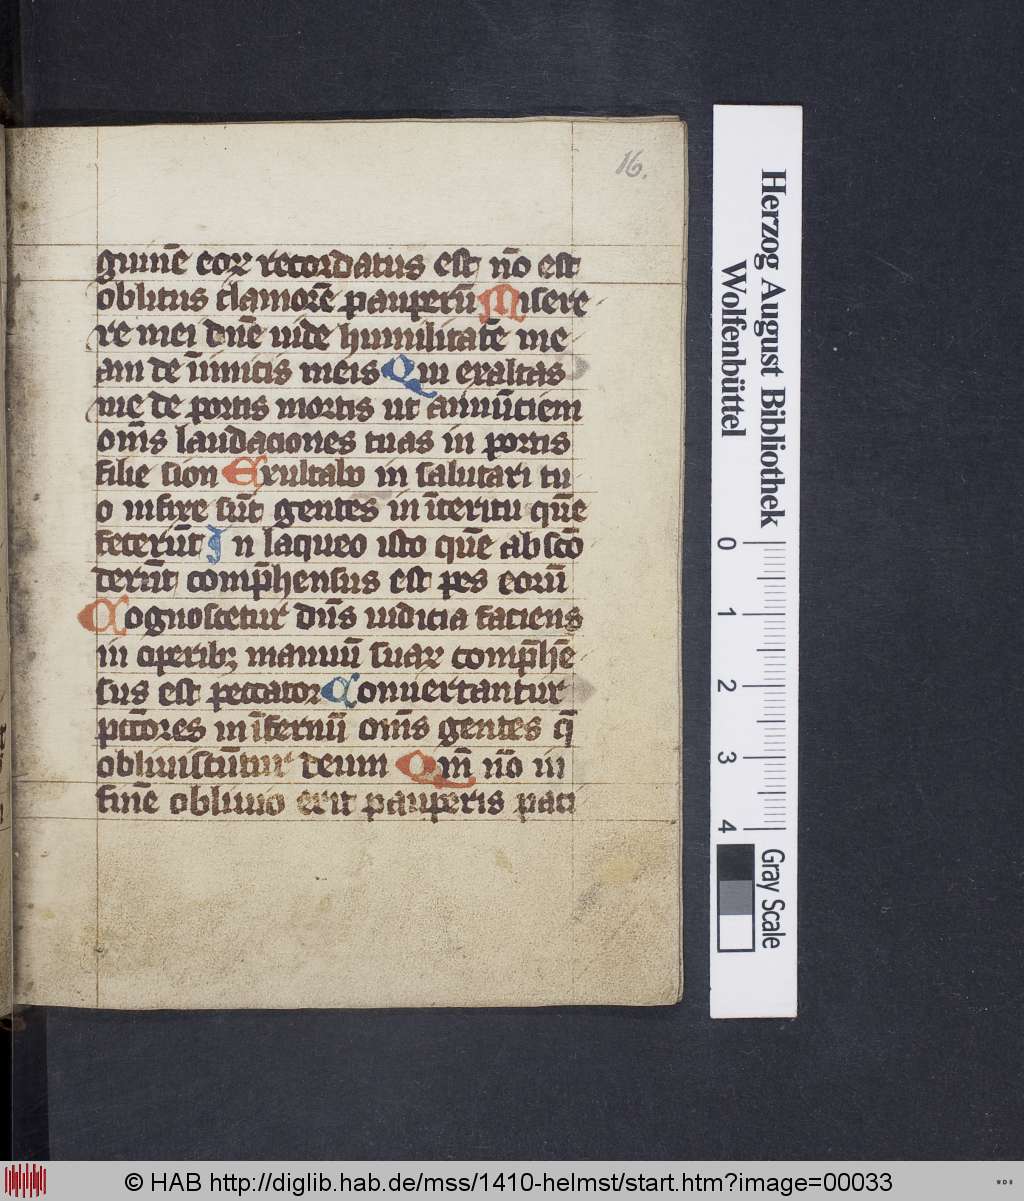 16.
guinē eoꝝ recordatus est nō est
oblitus clamorē pauperū Misere
re mei dn̄e uide humilitatē me
am de īimicis meis Qui exaltas
me de portis mortis ut annūciem
om̄s laudaciones tuas in portis
filie sion Exultabo in salutari tu
o infixe sūt gentes in īteritu quē
fecerūt In laqueo isto quē absco
derūt comp̄hensus est pes eorū
Cognoscetur dn̄s iudicia faciens
in operibꝫ manuū suaꝝ comp̄hē
sus est peccator Conuertantur
pctōres in īfernū om̄s gentes q̄
obliuiscūtur deum Qm̄ nō in
finē obliuio erit pauperis paci
Herzog August Bibliothek
Wolfenbüttel
0 1 2 3 4
Gray Scale
© HAB http://diglib.hab.de/mss/1410-helmst/start.htm?image=00033